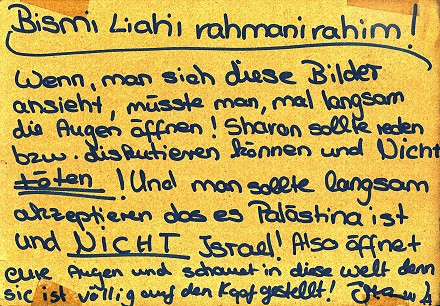 Bismi Llahi rahmani rahim!
Wenn, man sich diese Bilder
ansieht, müsste man, mal langsam
die Augen öffnen! Sharon sollte reden
bzw. diskutieren können und Nicht
töten! Und man sollte langsam
akzeptieren das es Palästina ist
und NICHT Israel! Also öffnet
eure Augen und schauet in diese welt denn
sie ist völlig auf den Kopf gestellt!